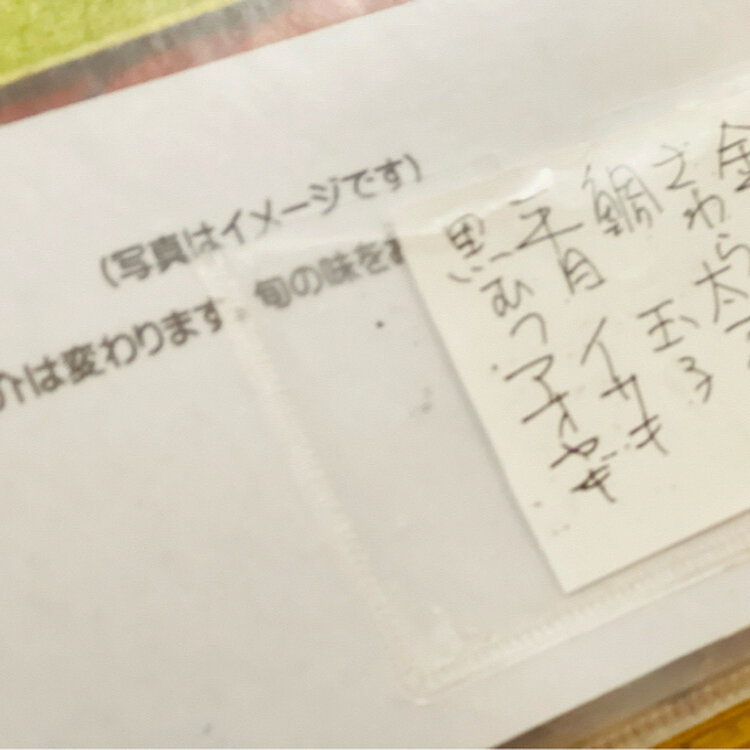 (写真はイメージです)
介は変わります。旬の味を
金
さわら 太
鯛 玉子
平目 イサキ
黒むつ アオヤギ